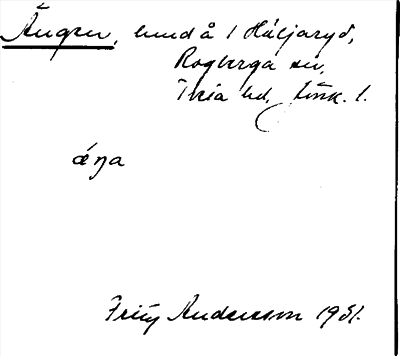 Ängen, hemd å 1 Häljaryd,
Rogberga sn,
Tveta hd, Jönk. l.
áŋa
Fritz Andersson 1931.